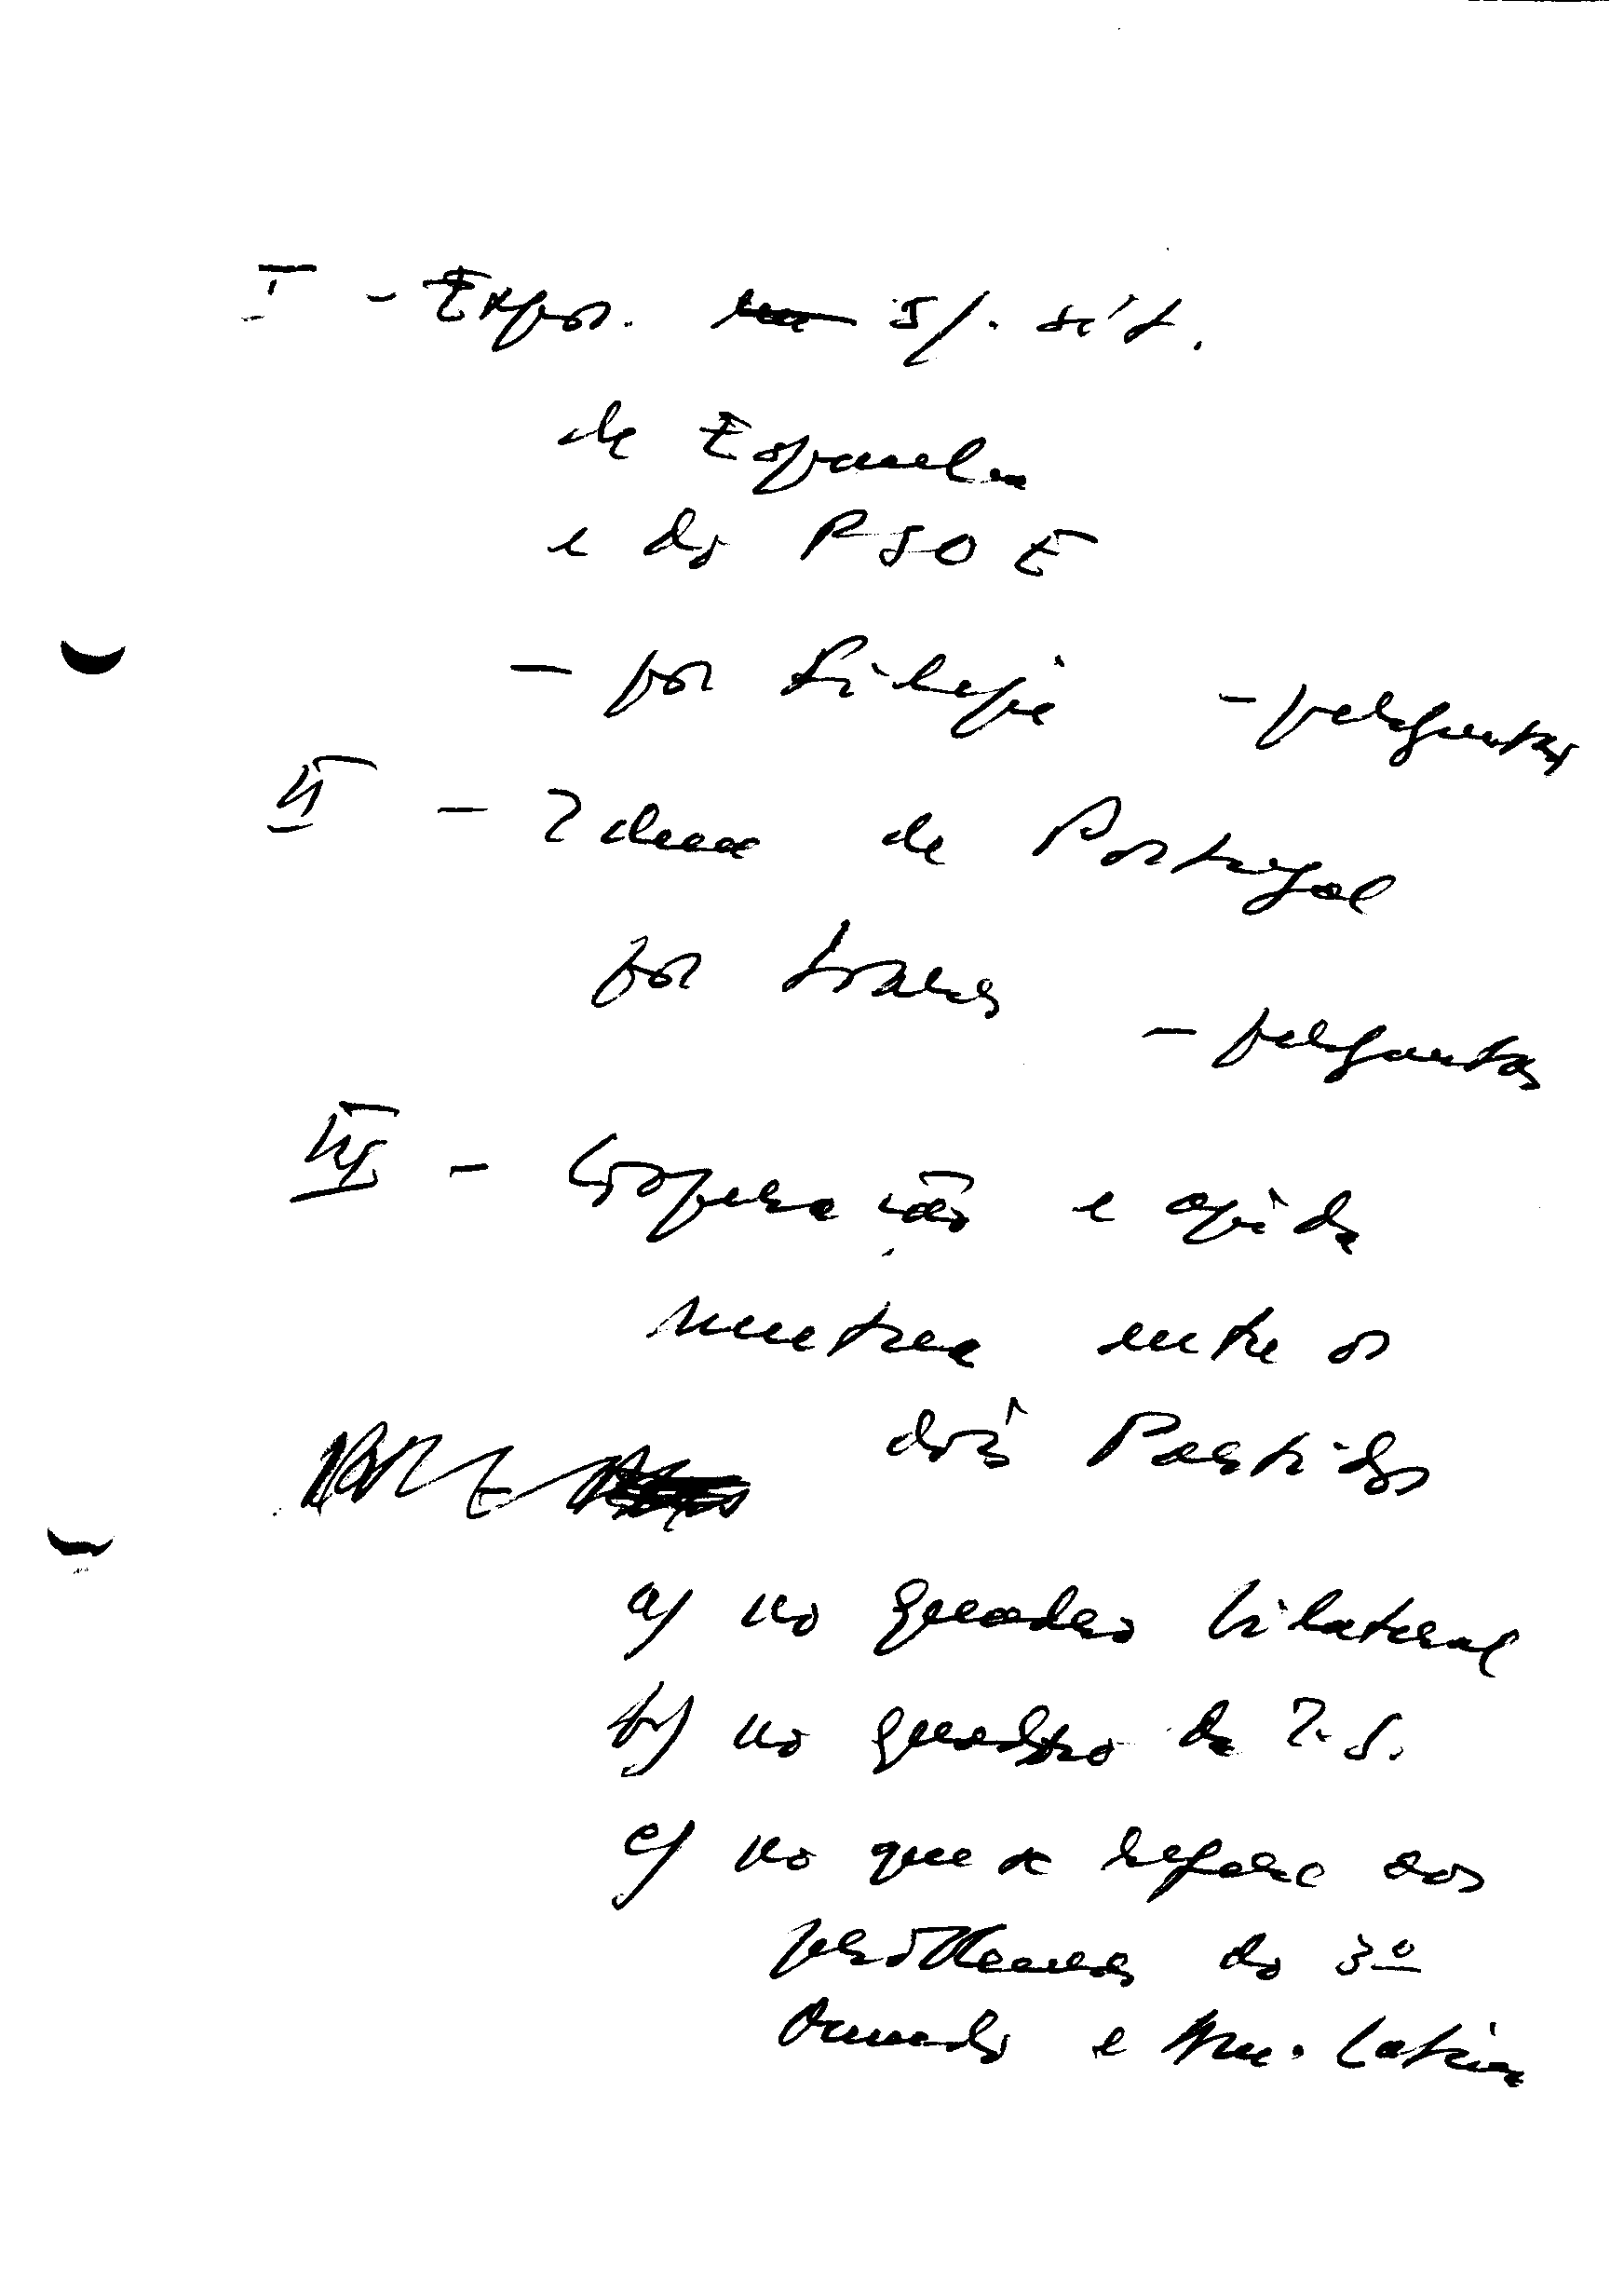 I - Expos. s/. sit.
de Espanha
e do PSOE
- por Filipe - perguntas
II - Idem de Portugal
por Soares
- perguntas
III - Cooperação e ajuda
mútua entre os
dois Partidos
a) no quadro bilateral
b) no quadro da I.S.
c) no que se refere aos
problemas do 3º
Mundo e Am. Latina